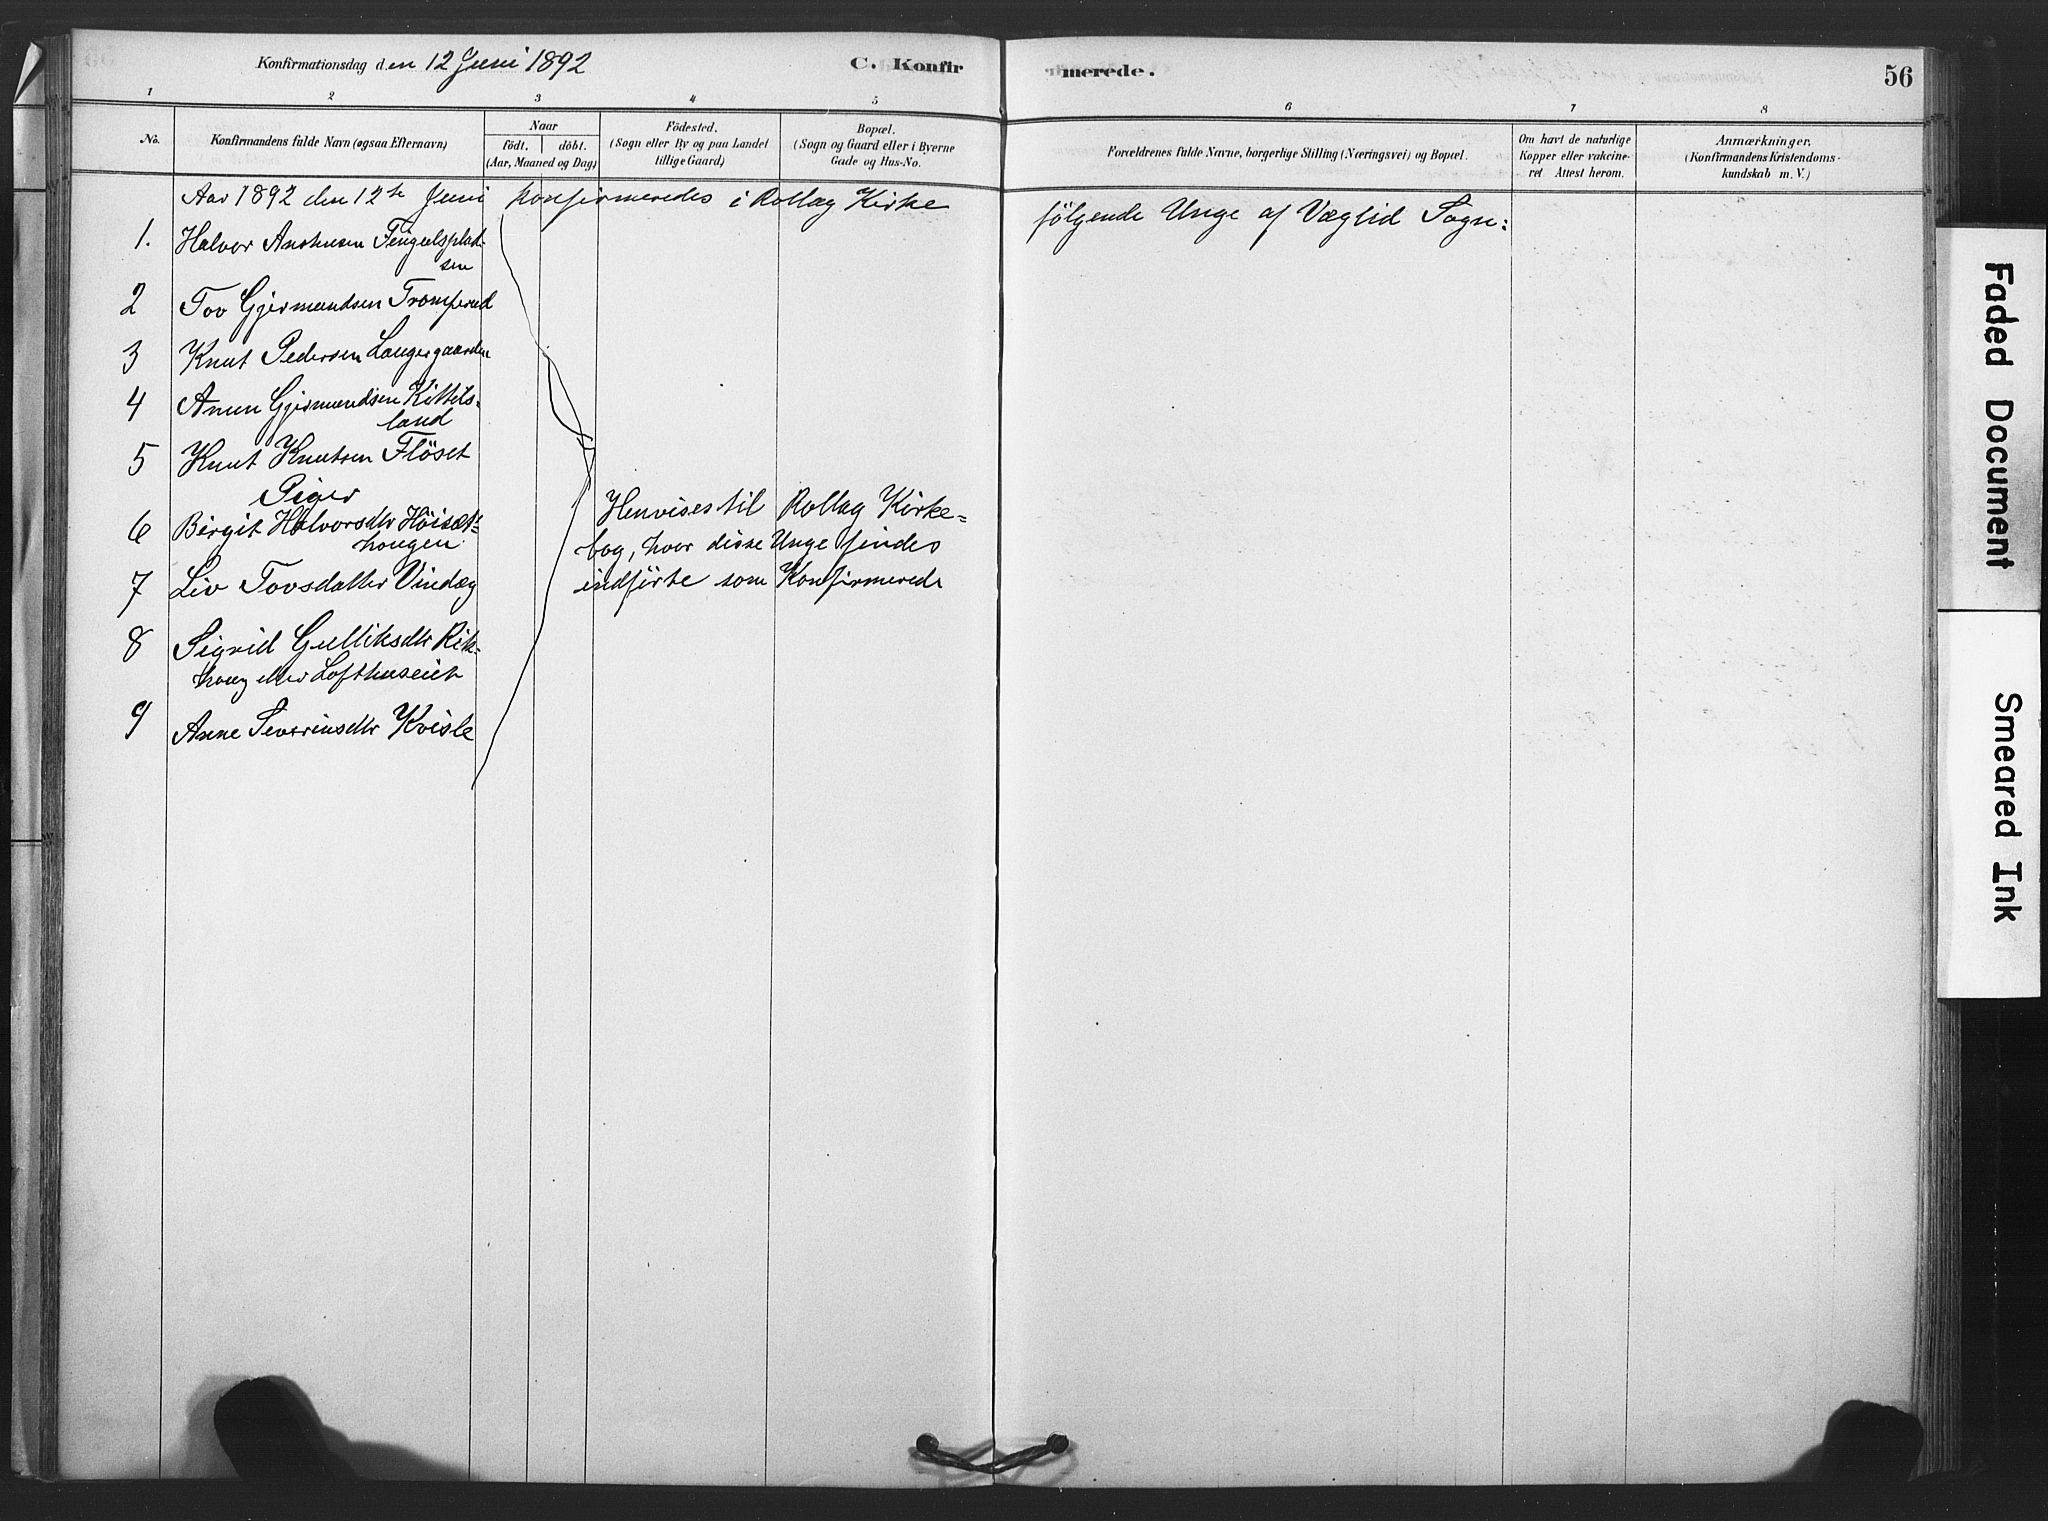 Konfirmationsdag den 12 Juni 1892
C. Konfirmerede.
56
1 2 3 4 5 6 7 8
No.
Konfirmandens fulde Navn (ogsaa Efternavn)
Naar
födt. döbt.
(Aar, Maaned og Dag)
Födested.
(Sogn eller By og paa Landet
tillige Gaard)
Bopæl.
(Sogn og Gaard eller i Byerne
Gade og Hus-No.
Forældrenes fulde Navne, borgerlige Stilling (Næringsvei) og Bopæl.
Om havt de naturlige
Kopper eller vakcine-
ret Attest herom.
Anmærkninger.
(Konfirmandens Kristendoms-
kundskab m. V.)
Aar 1892 den 12te Juni konfirmeredes i Rollag Kirke
følgende Unge af Væglid Sogn:
1. Halvor
sen
2 Tov Gjermundsen Tromperud
3 Knut Pedersen Laugergaarden
4 Amun Gjermundsen Kittils-
land
5 Knut Knutsen Flöset
Piger
6 Birgit Halvorsdtr Höisæt-
hougen
7 Liv Tovsdatter Vindeg
8 Sigrid Gulliksdtr
eller Lofthuseiet
9 Anne Severinsdtr Kvisle
Henvises til Rollag Kirke=
bog, hvor disse Unge findes
indförte som Konfirmerede
Faded Document
Smeared Ink